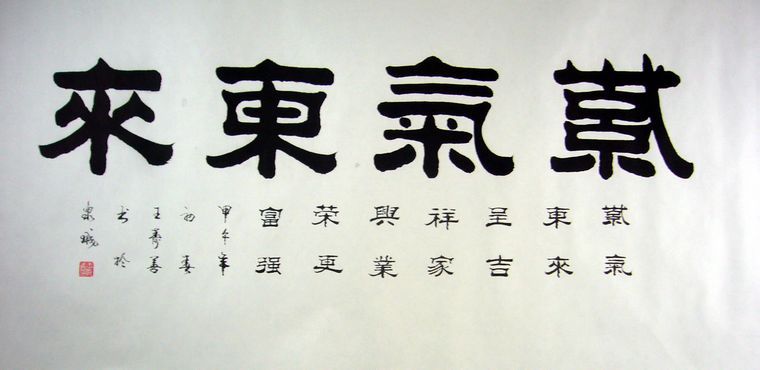 紫氣東來
紫氣
東來
呈吉
祥家
興業
荣更
富强
甲午年
初春
王壽善
书於
泉城